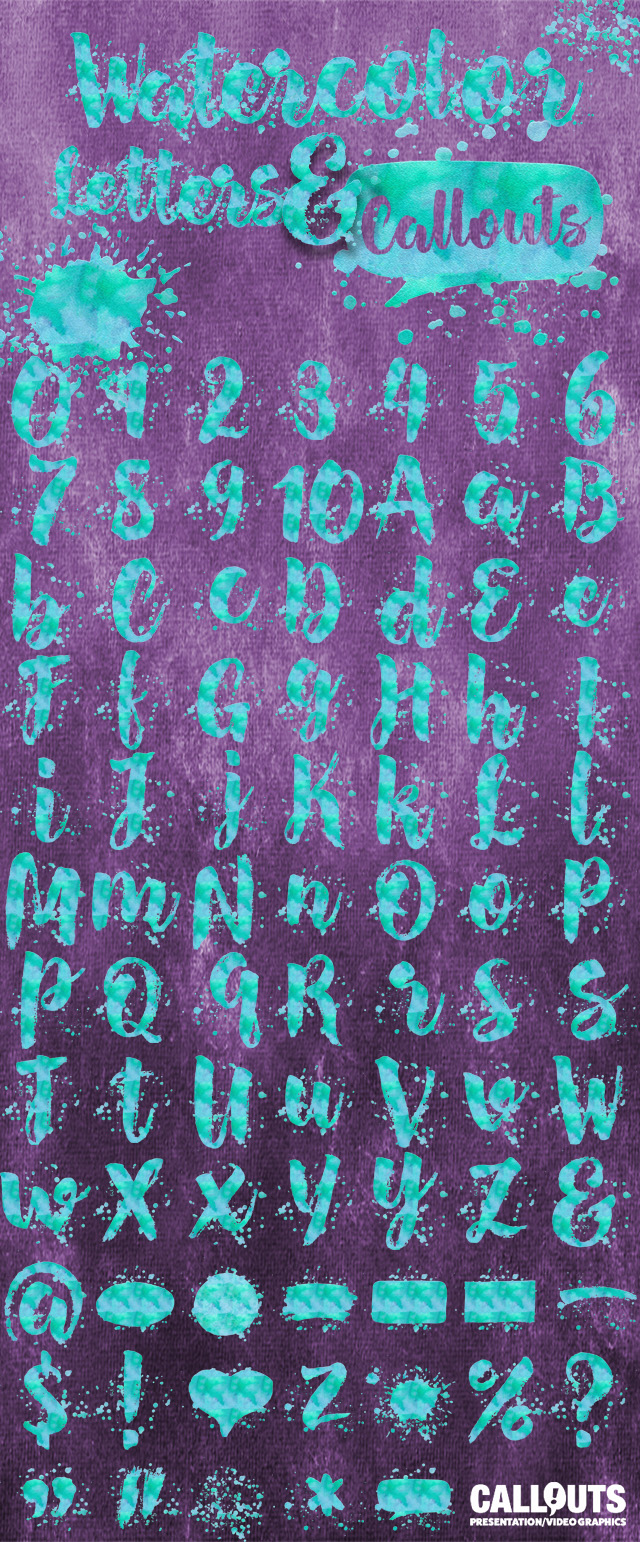 Watercolor
Letters & Callouts
0 1 2 3 4 5 6
7 8 9 10 A a B
b C c D d E e
F f G g H h I
i J j K k L l
M m N n O o P
p Q q R r S s
T t U u V v W
w X x Y y Z &
@
$ ! z % ?
" " *
CALLOUTS
PRESENTATION/VIDEO GRAPHICS